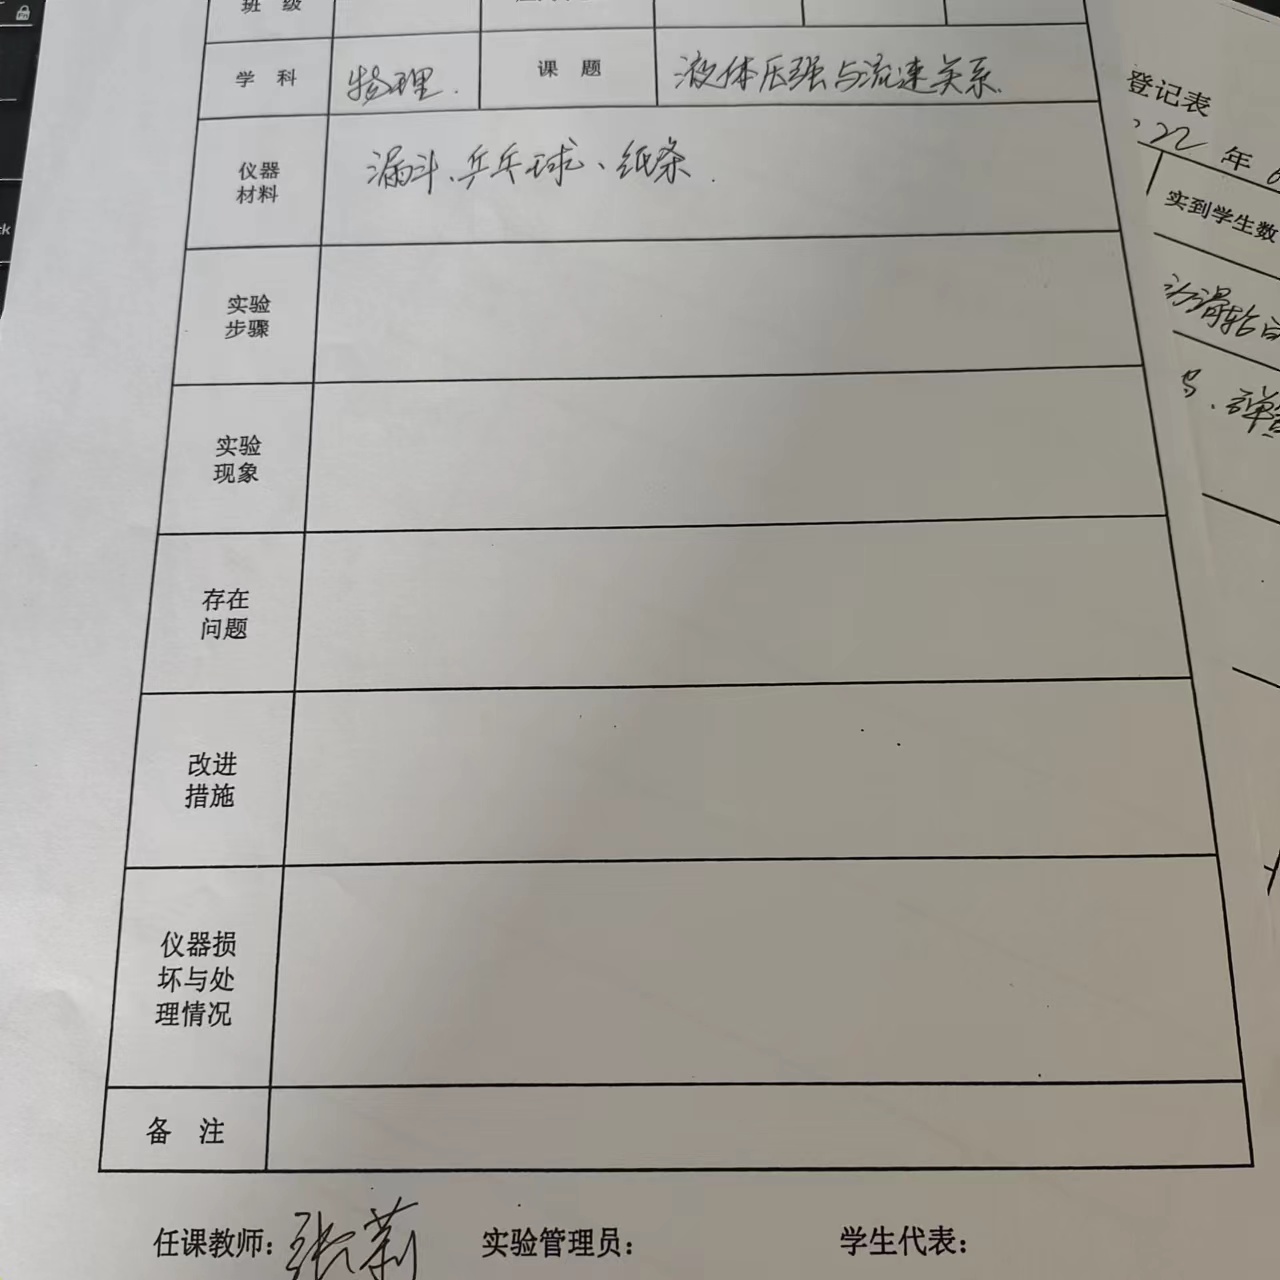 班 级
学 科 物理. 课 题 液体压强与流速关系.
仪器
材料
漏斗、乒乓球、纸条.
实验
步骤
实验
现象
存在
问题
改进
措施
仪器损
坏与处
理情况
备 注
任课教师: 张莉 实验管理员: 学生代表:
登记表
22 年
实到学生数
滑轮